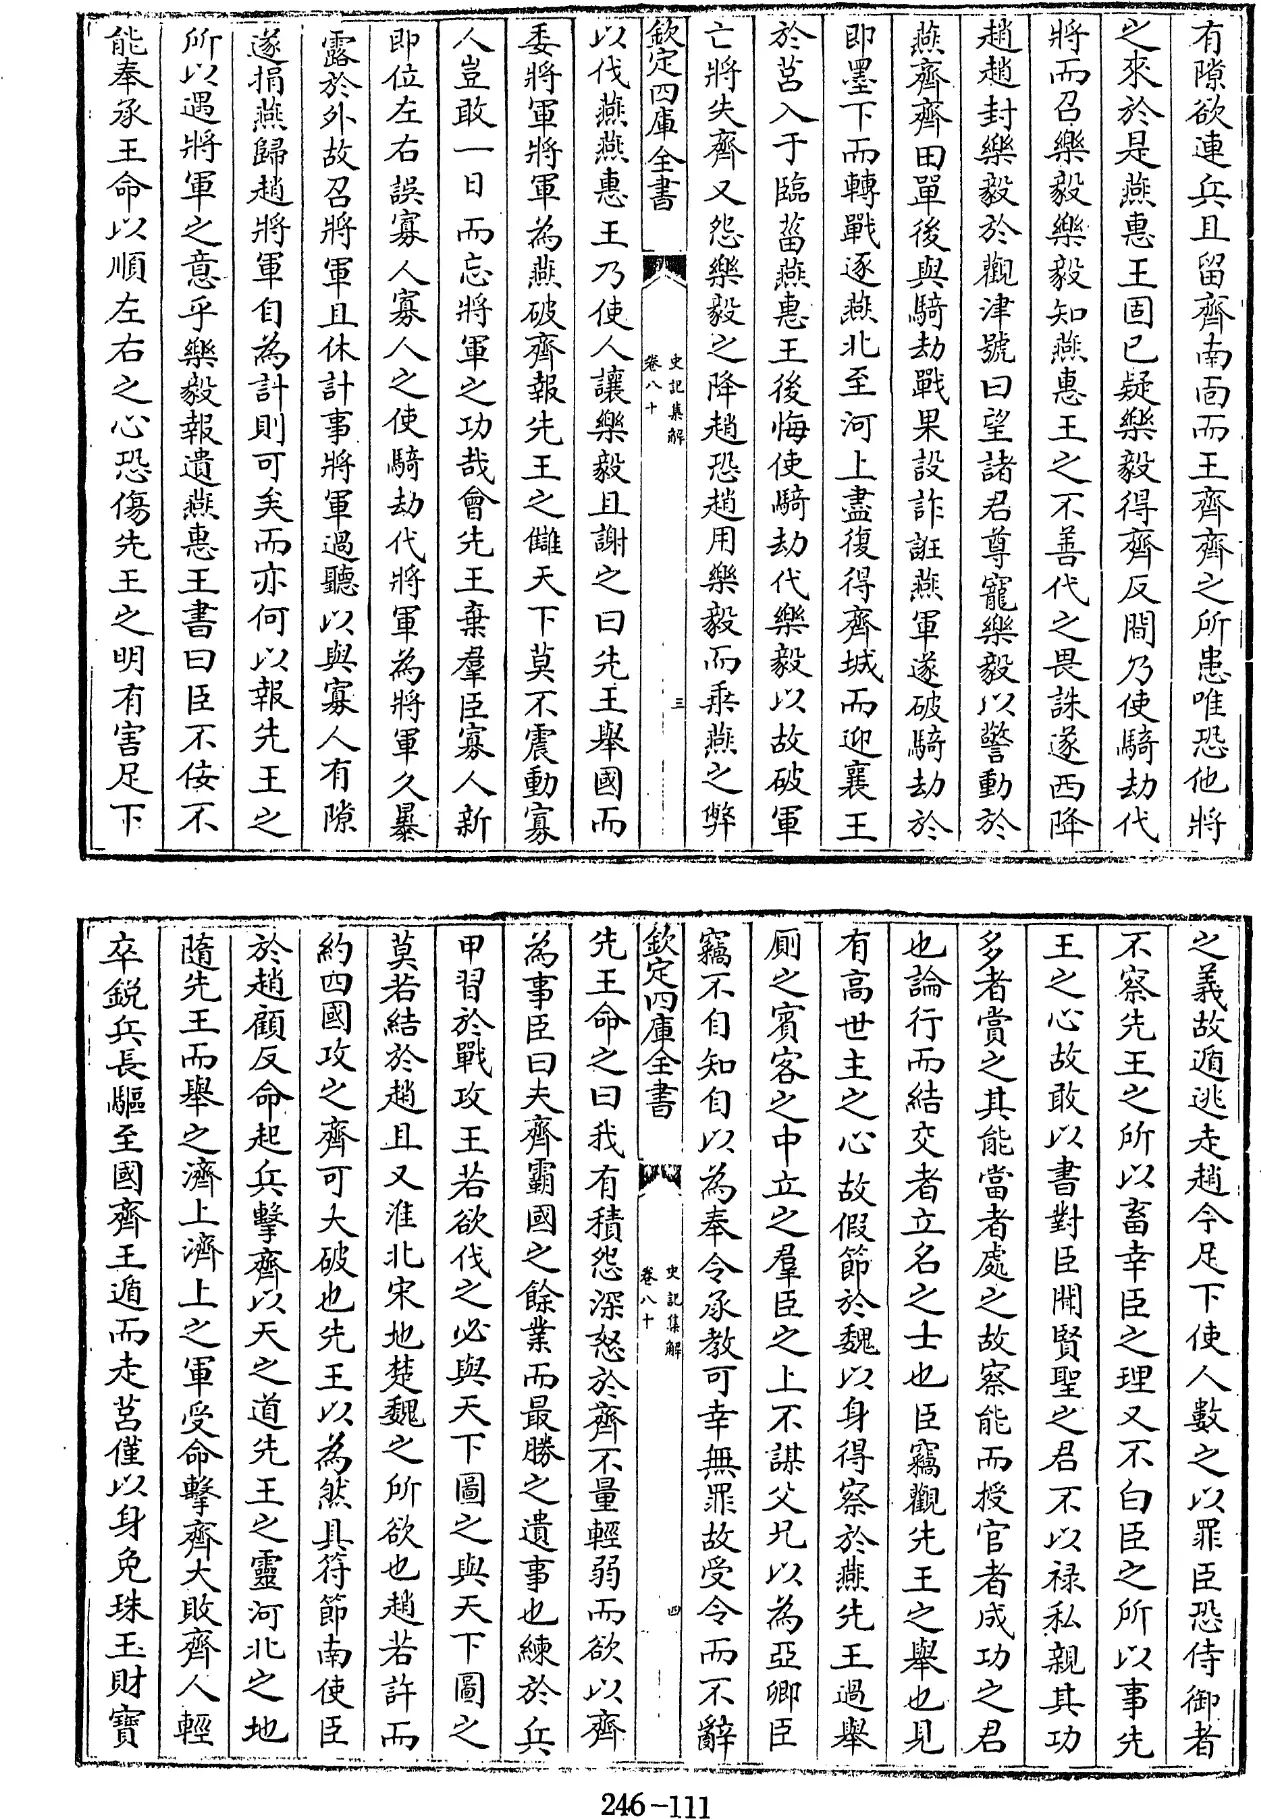 有隙欲連兵且留齊南面而王齊齊之所患唯恐他將
之來於是燕惠王固已疑樂毅得齊反間乃使騎劫代
將而召樂毅樂毅知燕惠王之不善代之畏誅遂西降
趙趙封樂毅於觀津號曰望諸君尊寵樂毅以警動於
燕齊齊田單後與騎劫戰果設詐誑燕軍遂破騎劫於
即墨下而轉戰逐燕北至河上盡復得齊城而迎襄王
於莒入于臨菑燕惠王後悔使騎劫代樂毅以故破軍
亡將失齊又怨樂毅之降趙恐趙用樂毅而乘燕之弊
欽定四庫全書
史記集解
卷八十
三
以伐燕燕惠王乃使人讓樂毅且謝之曰先王舉國而
委將軍將軍為燕破齊報先王之讎天下莫不震動寡
人豈敢一日而忘將軍之功哉會先王棄羣臣寡人新
即位左右誤寡人寡人之使騎劫代將軍為將軍久暴
露於外故召將軍且休計事將軍過聽以與寡人有隙
遂捐燕歸趙將軍自為計則可矣而亦何以報先王之
所以遇將軍之意乎樂毅報遺燕惠王書曰臣不佞不
能奉承王命以順左右之心恐傷先王之明有害足下
之義故遁逃走趙今足下使人數之以罪臣恐侍御者
不察先王之所以畜幸臣之理又不白臣之所以事先
王之心故敢以書對臣聞賢聖之君不以禄私親其功
多者賞之其能當者處之故察能而授官者成功之君
也論行而結交者立名之士也臣竊觀先王之舉也見
有高世主之心故假節於魏以身得察於燕先王過舉
厠之賓客之中立之羣臣之上不謀父兄以為亞卿臣
竊不自知自以為奉令承教可幸無罪故受令而不辭
欽定四庫全書
史記集解
卷八十
四
先王命之曰我有積怨深怒於齊不量輕弱而欲以齊
為事臣曰夫齊霸國之餘業而最勝之遺事也練於兵
甲習於戰攻王若欲伐之必與天下圖之與天下圖之
莫若結於趙且又淮北宋地楚魏之所欲也趙若許而
約四國攻之齊可大破也先王以為然具符節南使臣
於趙顧反命起兵擊齊以天之道先王之靈河北之地
隨先王而舉之濟上濟上之軍受命擊齊大敗齊人輕
卒鋭兵長驅至國齊王遁而走莒僅以身免珠玉財寶
246-111